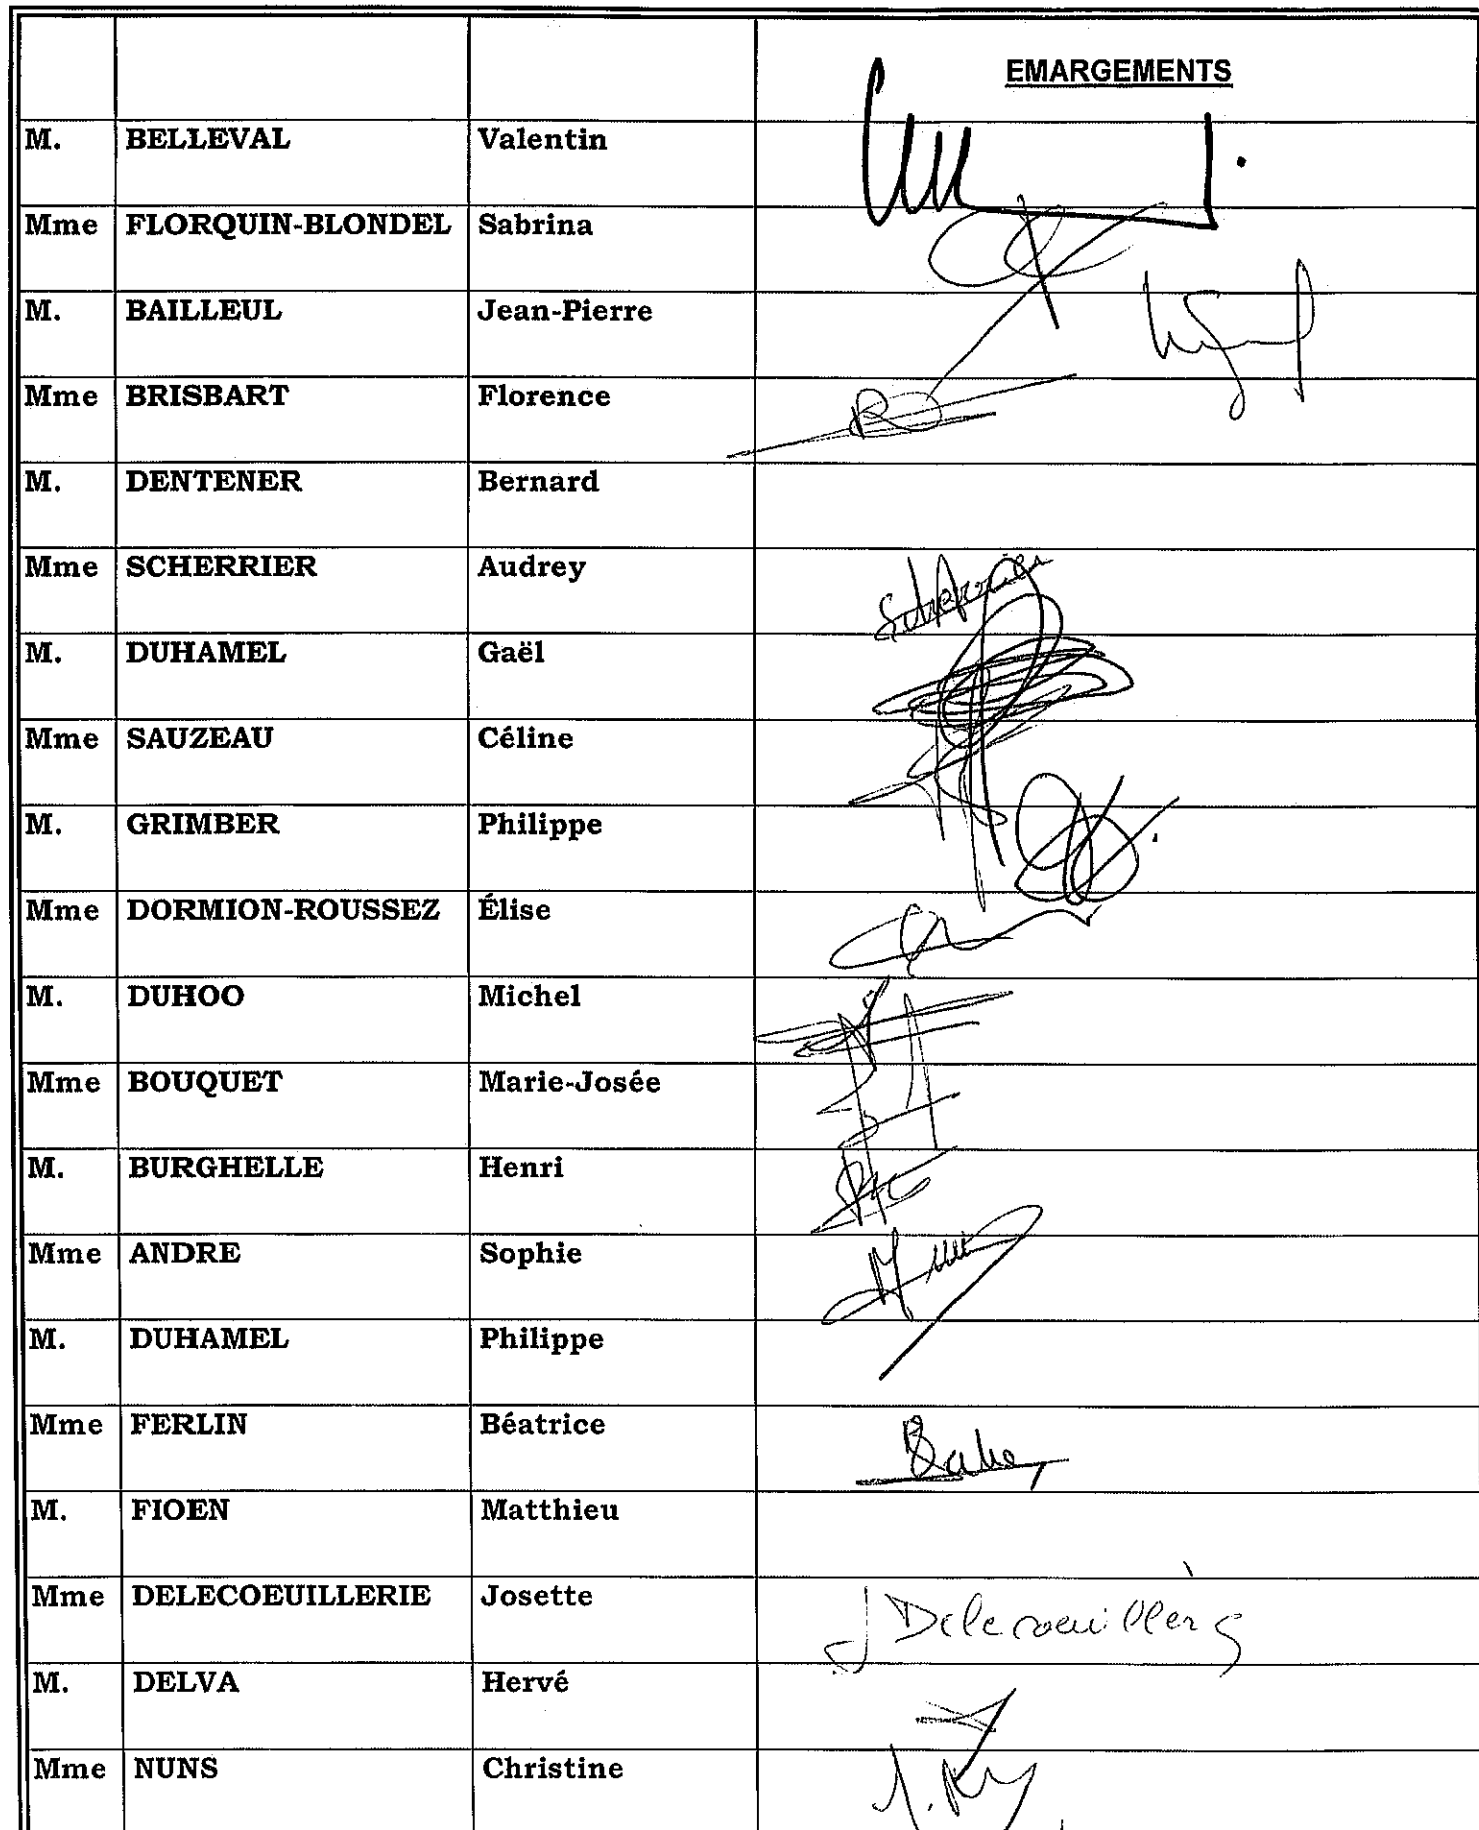 EMARGEMENTS
M. BELLEVAL Valentin
Mme FLORQUIN-BLONDEL Sabrina
M. BAILLEUL Jean-Pierre
Mme BRISBART Florence
M. DENTENER Bernard
Mme SCHERRIER Audrey Scherrier
M. DUHAMEL Gaël
Mme SAUZEAU Céline
M. GRIMBER Philippe
Mme DORMION-ROUSSEZ Élise
M. DUHOO Michel
Mme BOUQUET Marie-Josée
M. BURGHELLE Henri
Mme ANDRE Sophie
M. DUHAMEL Philippe
Mme FERLIN Béatrice
M. FIOEN Matthieu
Mme DELECOEUILLERIE Josette J Delecoeuillerie
M. DELVA Hervé
Mme NUNS Christine